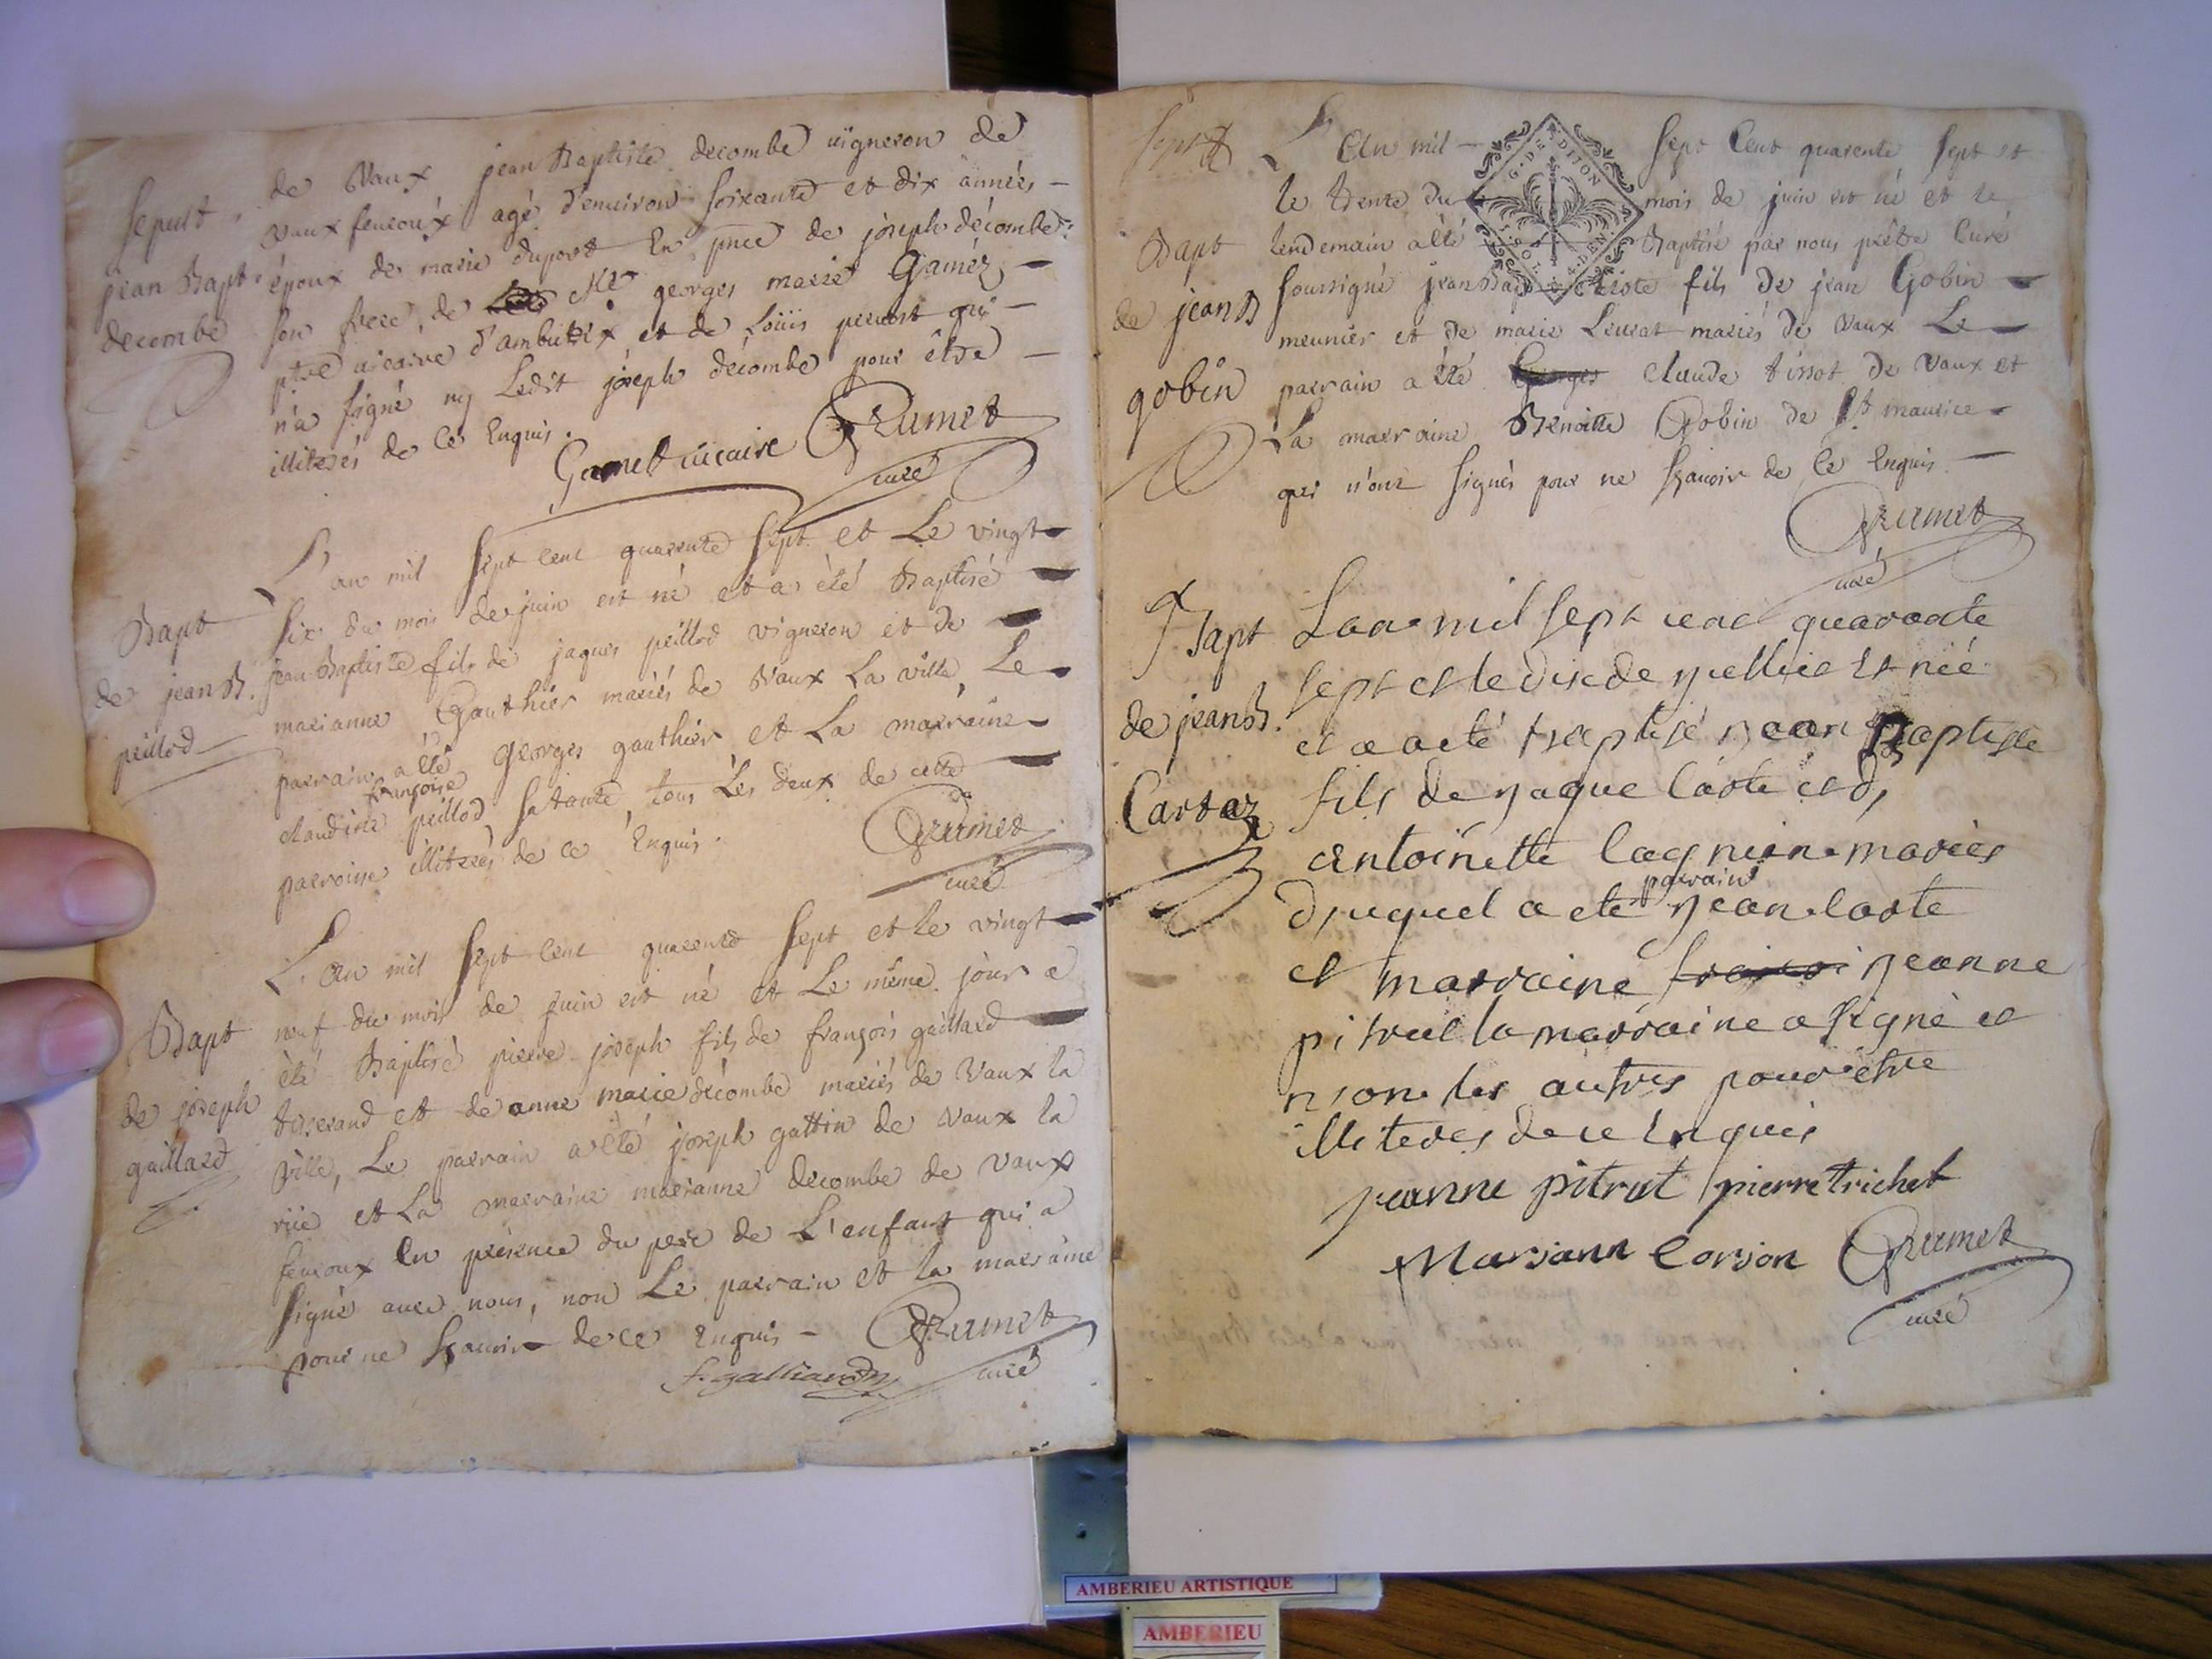 de Vaux jean Baptiste decombe vigneron de
sepult. Vaux fevroux agé d'enuiron soixante et dix années -
jean Bapt. époux de marie duport En pnce de joseph décombe
decombe son frere, de Mre georges marie Gamez -
ptre vicaire d'ambutrix et de Loüis prevost qui -
n'a signé ny Ledit joseph decombe pour être -
illiterés de ce Enquis.
Gamet uicaire Grumet
curé
L'an mil sept cent quarente sept et Le vingt
Bapt six du mois de juin est né et a été Baptisé
de jean B. jean Baptiste fils de jaques peillod vigneron et de
peillod marianne Gauthier mariés de Vaux La ville, Le
parrain a été Georges gauthier et La marraine
françoise
claudine peillod sa tante, tous Les deux de cette
parroisse illiterés de ce Enquis.
Grumet
curé
L'an mil sept cent quarente sept et le vingt
Bapt neuf du mois de juin est né et Le même jour a
été Baptisé pierre joseph fils de françois gaillard
de joseph tisserand et de anne marie décombe mariés de Vaux la
gaillard ville, Le parrain a été joseph gottin de Vaux la
ville et La marraine marianne decombe de Vaux
fevroux En présence du pere de L'enfant qui a
signé avec nous, non Le parrain et la marraine
pour ne sçavoir de ce Enquis - Grumet
f. galliard curé
L'An mil - sept Cent quarente sept et
le trente du mois de juin est né et le
Bapt lendemain a été Baptisé par nous prêtre Curé
de jean B soussigné jean Baptiste fils de jean Gobin -
meunier et de marie Leurat mariés de Vaux Le
gobin parrain a été Georges claude tissot de Vaux et
La marraine Benoitte Gobin de St maurice
qui n'ont signés pour ne sçavoir de Ce Enquis -
Grumet
curé
Bapt Lan mil sept cent quarante
sept et le dix de juellie Et née
de jean B. et a eté baptisé jean Baptiste
Cartaz fils de jaque Carte et d,
antoinette lagnien mariés
parrain
duquel a eté jean carte
et marraine jeanne
pitrut la marraine a signé et
non les autres pour être
illiteres de ce Enquis
jeanne pitrut pierre trichet
Mariann Corjon Grumet
curé
AMBERIEU ARTISTIQUE
AMBERIEU